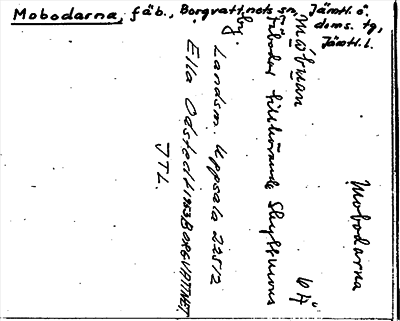 Mobodarna, fäb., Borgvattnets sn, Jämtl. ö.
doms. tg,
Jämtl. l.
Mobodarna
fäbodar tillhörande
by.
Landsm. Uppsala 22512
Ella Odstedt 1953 BORGVATTNET,
JTL.